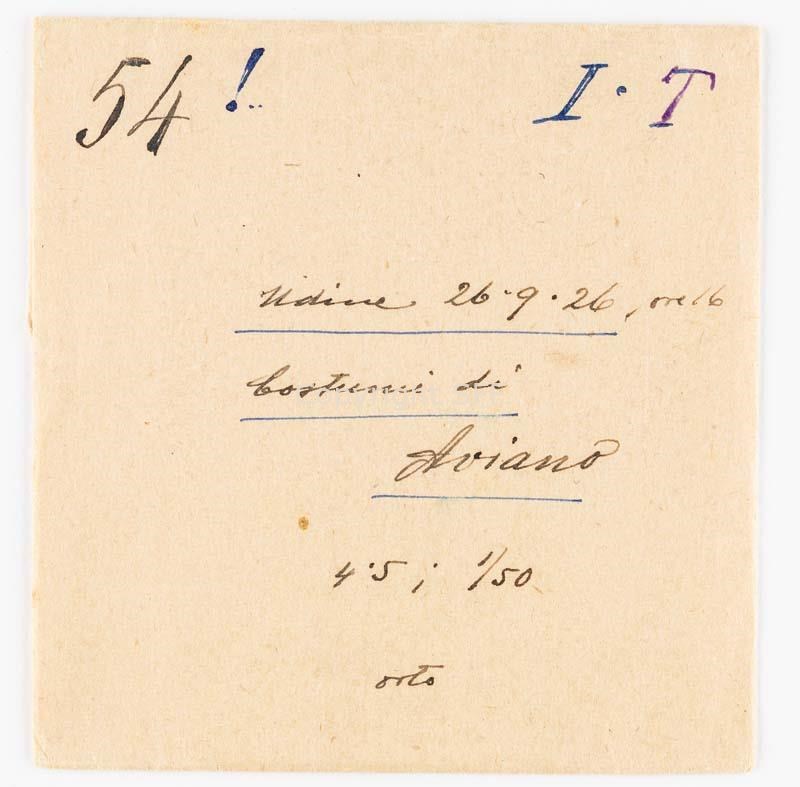 54 ! I · T
Udine 26·9·26, ore 16
Costumi di
Aviano
4·5 ; 1/50
orto